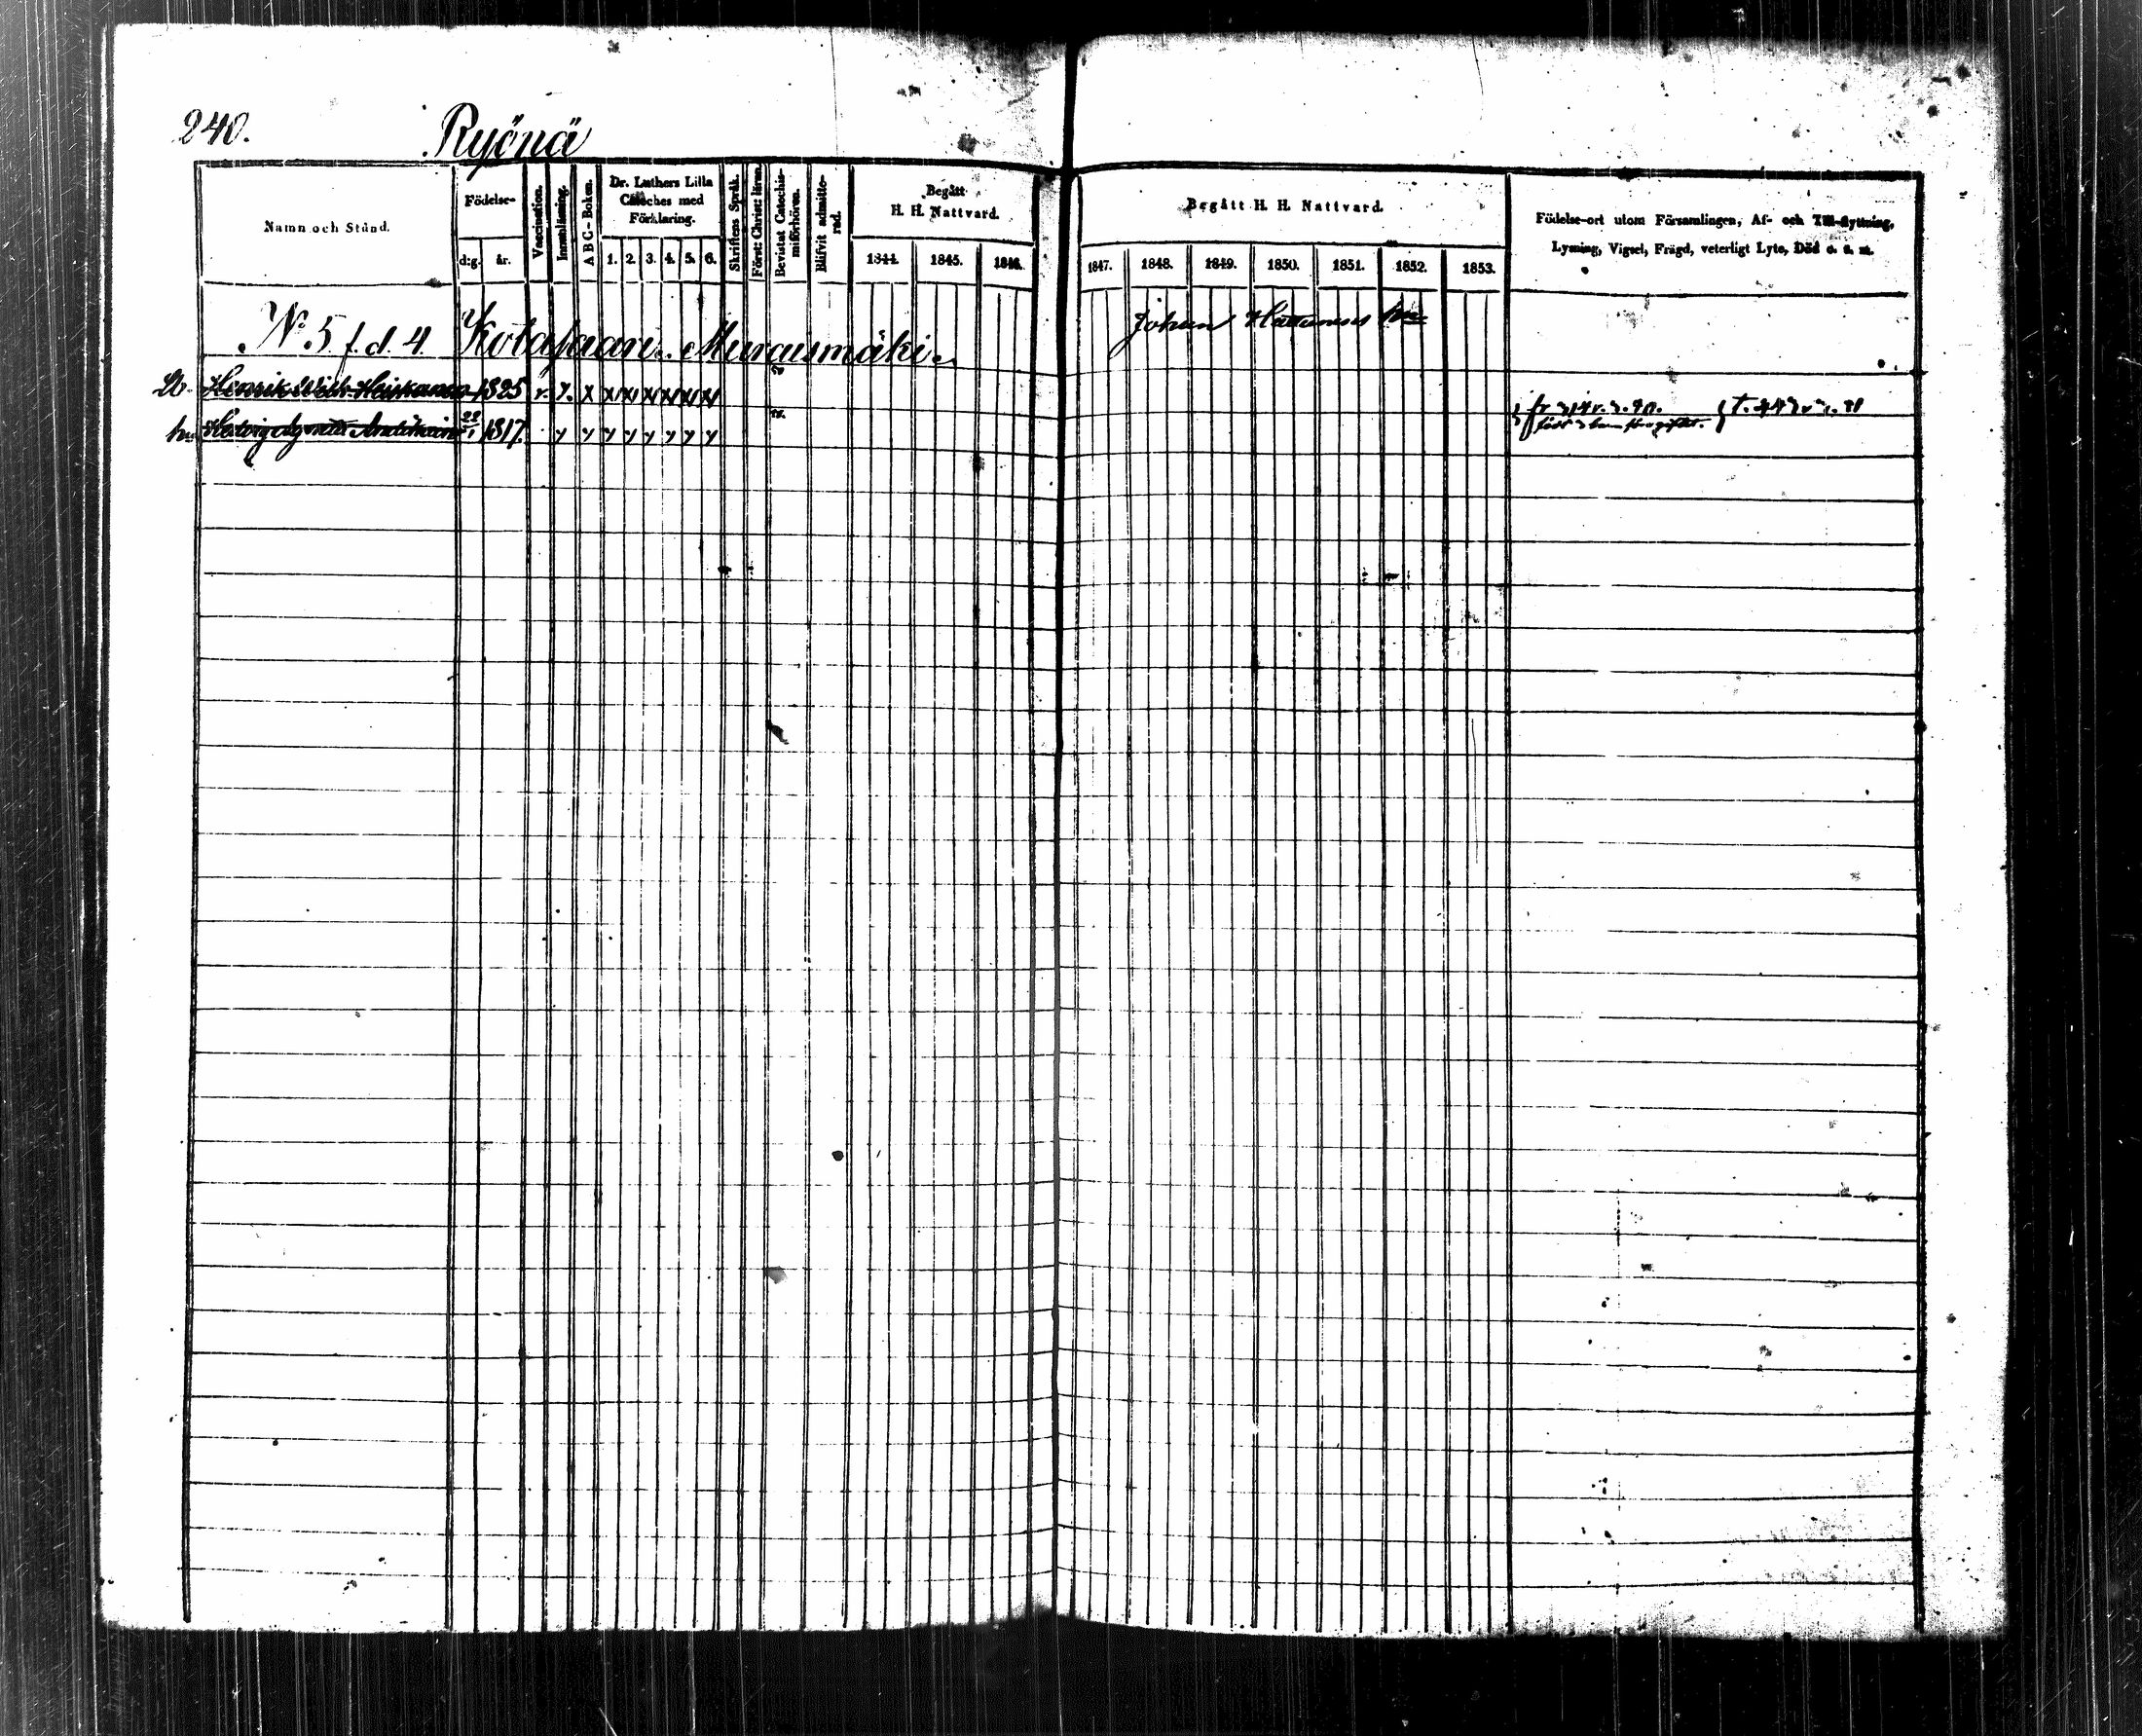 240.
Ryönä
Namn och Stånd.
Födelse-
d:g.
år.
Vaccination.
Innanläsning.
ABC-Boken.
Dr. Luthers Lilla
Cateches med
Förklaring.
1. 2. 3. 4. 5. 6.
Skriftens Språk.
Först: Christ: läran.
Bevistat Catechis-
miförhören.
Blifvit admitte-
rad.
Begått
H. H. Nattvard.
1844. 1845. 1846.
Begått H. H. Nattvard.
1847. 1848. 1849. 1850. 1851. 1852. 1853.
Födelse-ort utom Församlingen, Af- och Till-flyttning,
Lysning, Vigsel, Frägd, veterligt Lyte, Död o. s. m.
No 5 f. d. 4. Murausmäki
Johan
Henrik Heiskanen 1825 v. x. x x x x x x x
Hedvig 1817. y y y y y y y y